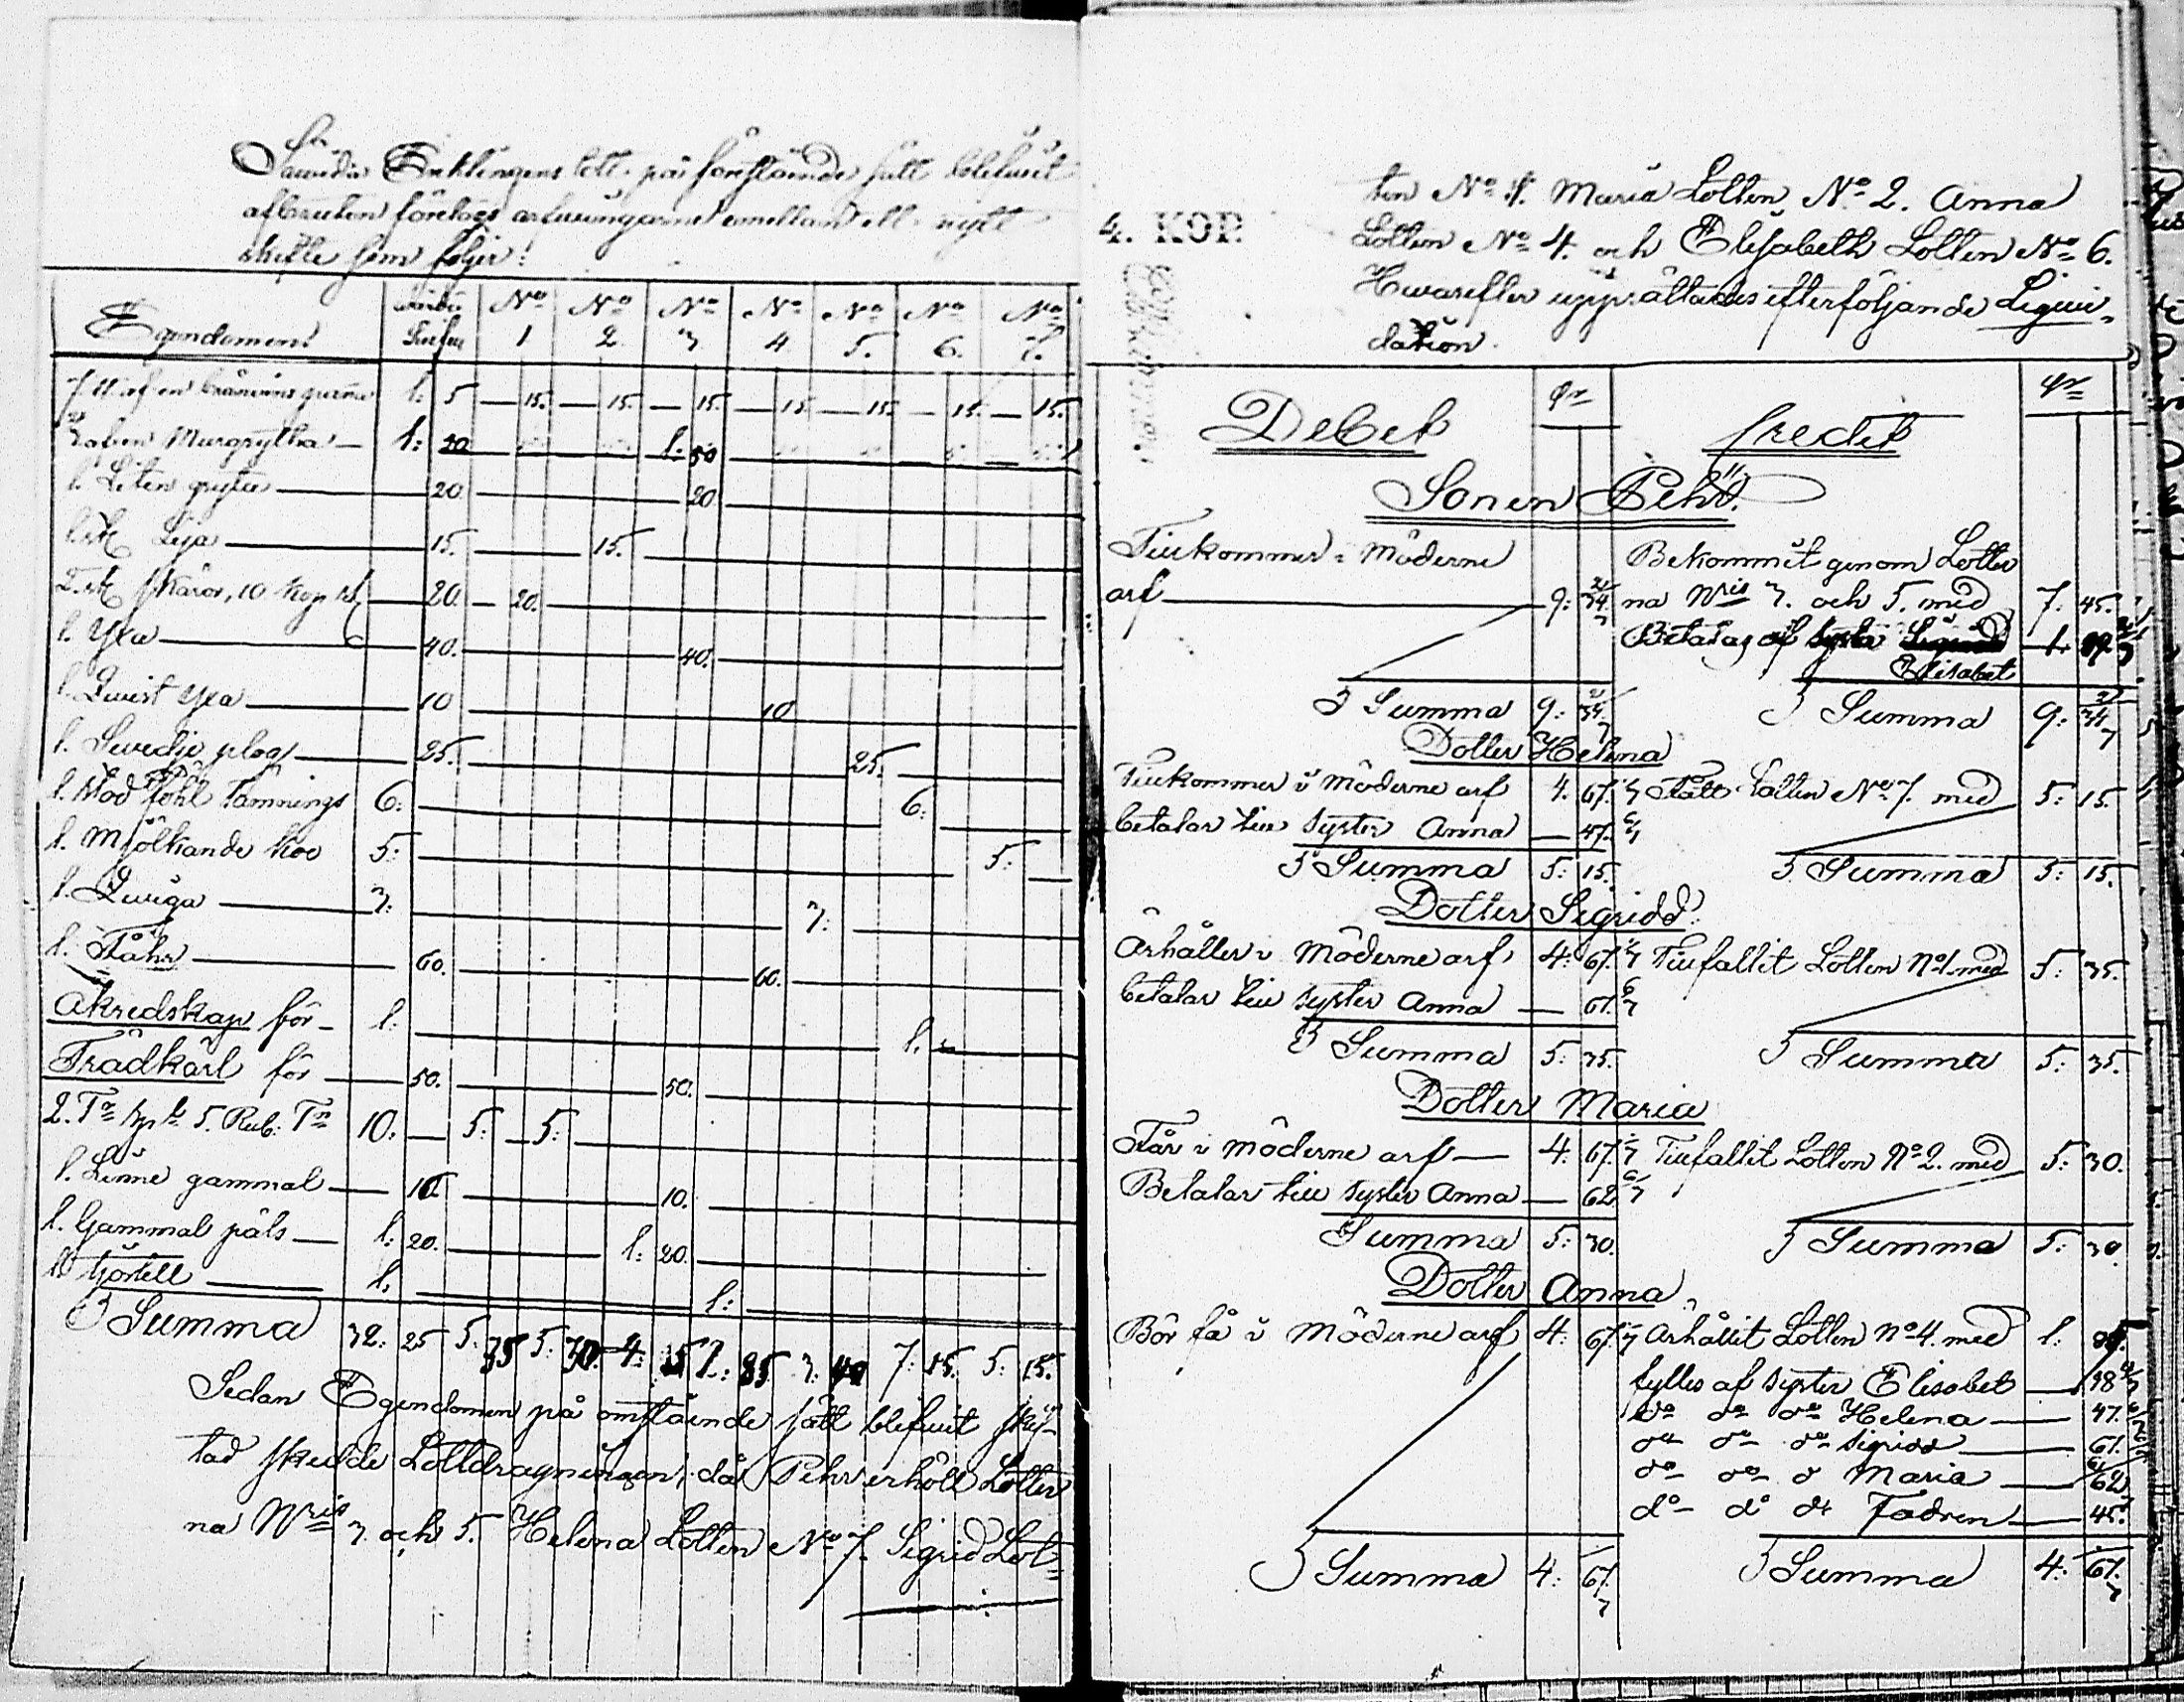 Enklingens lott på förestående sätt blefwit
afbruten företogs arfwingarne emellan ett nytt
skifte som följer:
Egendomen N° 1 N° 2. N° 3 N° 4 N° 5. N° 6. N° 7.
af en 1: 5 — 15. — 15. — 15. — 15. — 15. — 15. — 15.
Murgrytha — 1: 50 1: 50
1. Liten gryta — 20. 20.
1. st Lija — 15. 15.
2. st skäror, 10 Kop st — 20. — 20.
1. Yxa — 40. 40.
1. Qwist yxa — 10 10
1. Swedje plog — 25. 25.
1. Föhl 6: 6:
1. Mjölkande koo 5: 5:
1. Quiga — 3: 3:
1. Fåhr — 60. 60.
Åkredskap för — 1: 1:
Trädkärl för — 50. 50.
2. Tr 5. Rub. Tn 10: — 5: — 5:
1. Linne gammal — 10. 10.
1. Gammal päls — 1: 20. 1: 20.
1: 1:
Summa 32: 25 5: 35 5: 30. 4: 15 1: 85. 3: 40 7: 15. 5: 15.
Sedan Egendomen på omstående sätt blefwit skif-
tad skedde Lottdragningen, då Pehr erhöll Lotter
na Nris 3. och 5. Helena Lotten N° 7. Sigrid Lot=
4. KOP.
ten N° 1. Maria Lotten N° 2. Anna
Lotten N° 4. och Elisabeth Lotten N° 6.
Hwarefter upprättades efterföljande Liqui-
dation.
Debet Credit
Sonen Pehr.
Tillkommer i Möderne Bekommit genom Lotter
arf — 9: 34 2/7 na Nris 3. och 5. med 7: 45.
Betalas af syster — 1: 89 2/7
Elisabet
Summa 9: 34 2/7 Summa 9: 34 2/7
Dotter Helena
Tillkommer i Möderne arf 4: 67. 1/7 Fått Lotten N° 7. med 5: 15.
betalar till syster Anna — 47. 6/7
Summa 5: 15. Summa 5: 15.
Dotter Sigridd.
Ärhåller i Möderne arf 4: 67. 1/7 Tillfallit Lotten N° 1. med 5: 35.
betalar till syster Anna — 67. 6/7
Summa 5: 35. Summa 5: 35.
Dotter Maria
Får i Möderne arf — 4: 67. 1/7 Tillfallit Lotten N° 2. med 5: 30.
Betalar till syster Anna — 62. 6/7
Summa 5: 30. Summa 5: 30.
Dotter Anna
Bör få i Möderne arf 4: 67. 1/7 Ärhållit Lotten N° 4. med 1: 85.
fylles af syster Elisabet —
do do do Helena — 47.
do do do Sigridd — 67.
do do d Maria — 62
do do do Fadren — 45.
Summa 4: 67. 1/7 Summa 4: 67. 1/7